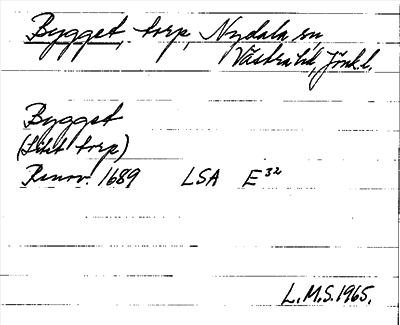 Bygget, torp, Nydala sn,
Västra hd, Jönk.l.
Bygget
(Litet torp)
Renov. 1689 LSA E32
L.M.S. 1965.